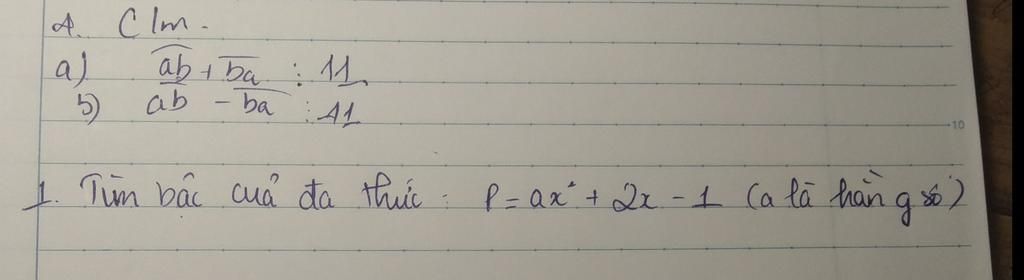 A. C/m.
a) ab + ba ⋮ 11
b) ab - ba ⋮ 11
10
1. Tìm bậc cuả đa thức: P = ax² + 2x - 1 (a là hằng số)